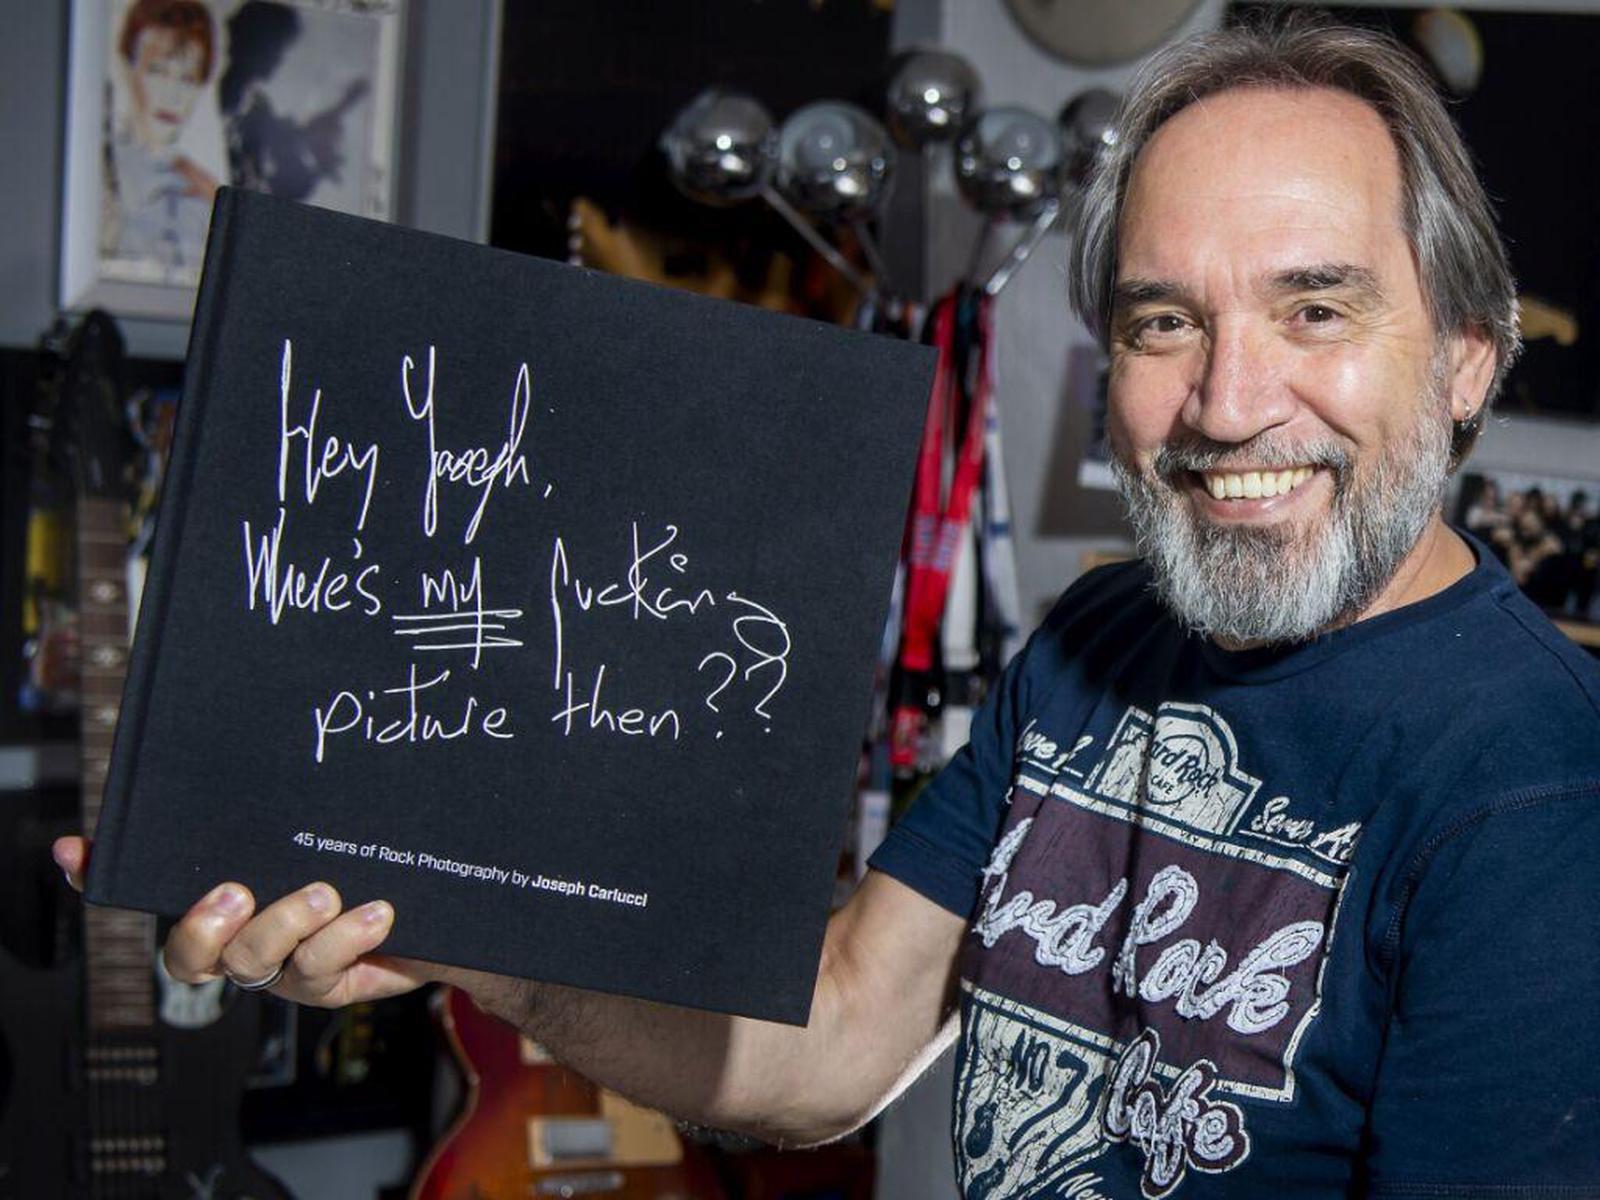 Hey Joseph,
Where's my fucking
picture then??
45 years of Rock Photography by Joseph Carlucci
Hard Rock
CAFE
Hard Rock
Cafe
NO 7